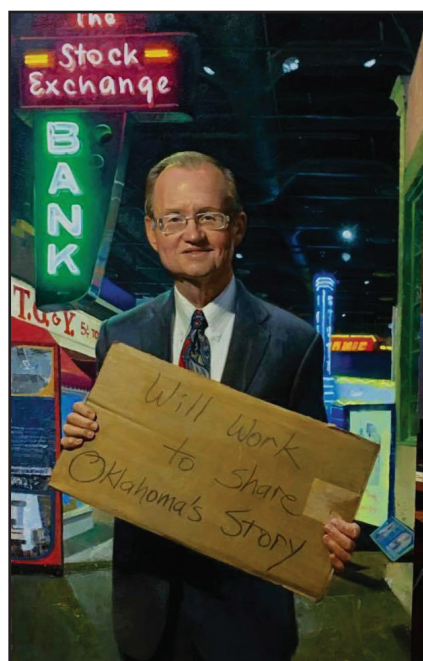 The
Stock
Exchange
BANK
T.G.&Y. 5¢ TO
Will Work
to share
Oklahoma's Story